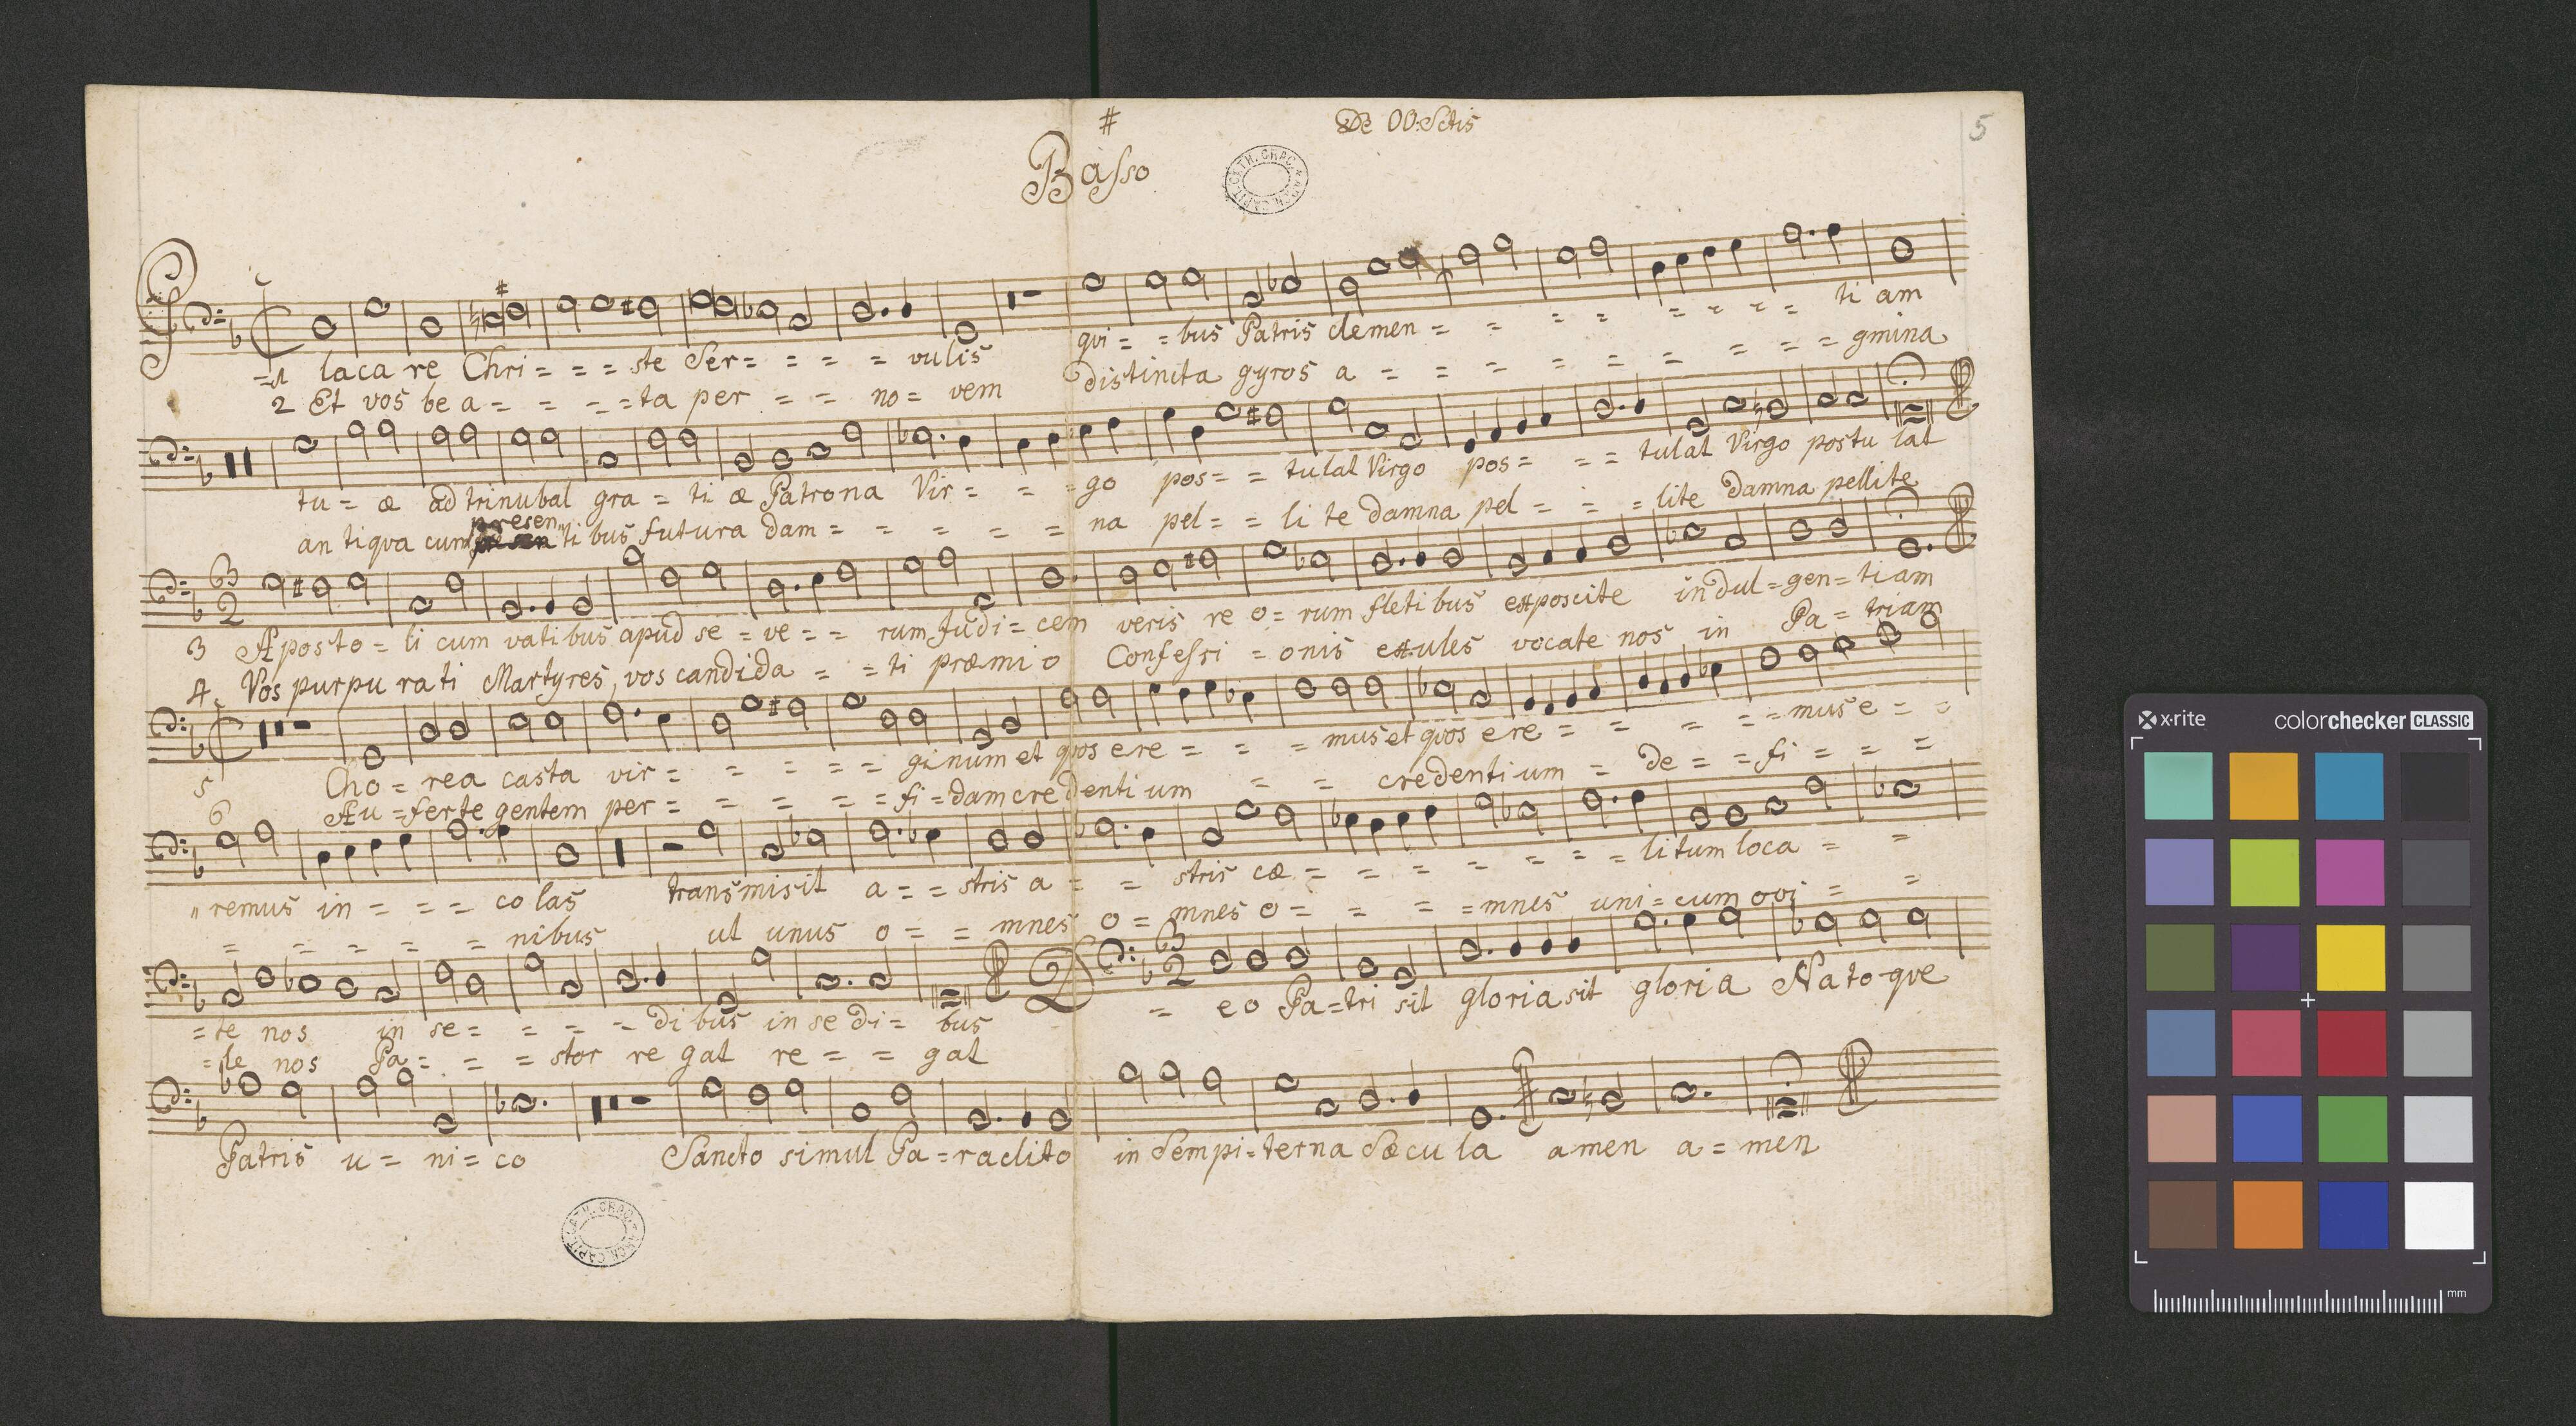 #
De OO: Sctis
5
Basso
=1 laca re Chri = = = ste Ser = = = = vulis qui = = bus Patris clemen = = = = = = = = ti am
2 Et vos be a = = = = ta per = = no = vem distincta gyros a = = = = = = = = = gmina
tu = æ ad trinubal gra = ti æ Patrona Vir = = = go pos = = tulat Virgo pos = = = tulat Virgo postu lat
presen
an tiqva cum ti bus futura dam = = = = = na pel = = li te damna pel = = = lite damna pellite
3 Aposto = li cum vatibus apud se = ve = = rum Judi = cem veris re o = rum fleti bus exposcite indul = gen = tiam
4 Vos purpu rati Martyres, vos candida = = ti præmi o Confessi = onis exules vocate nos in Pa = triam
5 Cho = rea casta vir = = = = = ginum et qvos ere = = = mus et qvos ere = = = = = mus e = =
6 Au = ferte gentem per = = = = = fi = dam credenti um = = credenti um = de = = fi = = =
" remus in = = = co las transmisit a = = stris a = = stris cæ = = = = = = = li tum loca = =
= = = = = nibus ut unus o = = mnes o = mnes o = = = = mnes uni = cum ovi = =
= te nos in se = = = = di bus in se di = bus = eo Pa = tri sit gloria sit gloria Nato-qve
= le nos Pa = = = stor re gat re = = gat
Patris u = ni = co Sancto simul Pa = raclito in Sempi = terna Sæcu la amen a = men
x·rite
colorchecker CLASSIC
mm